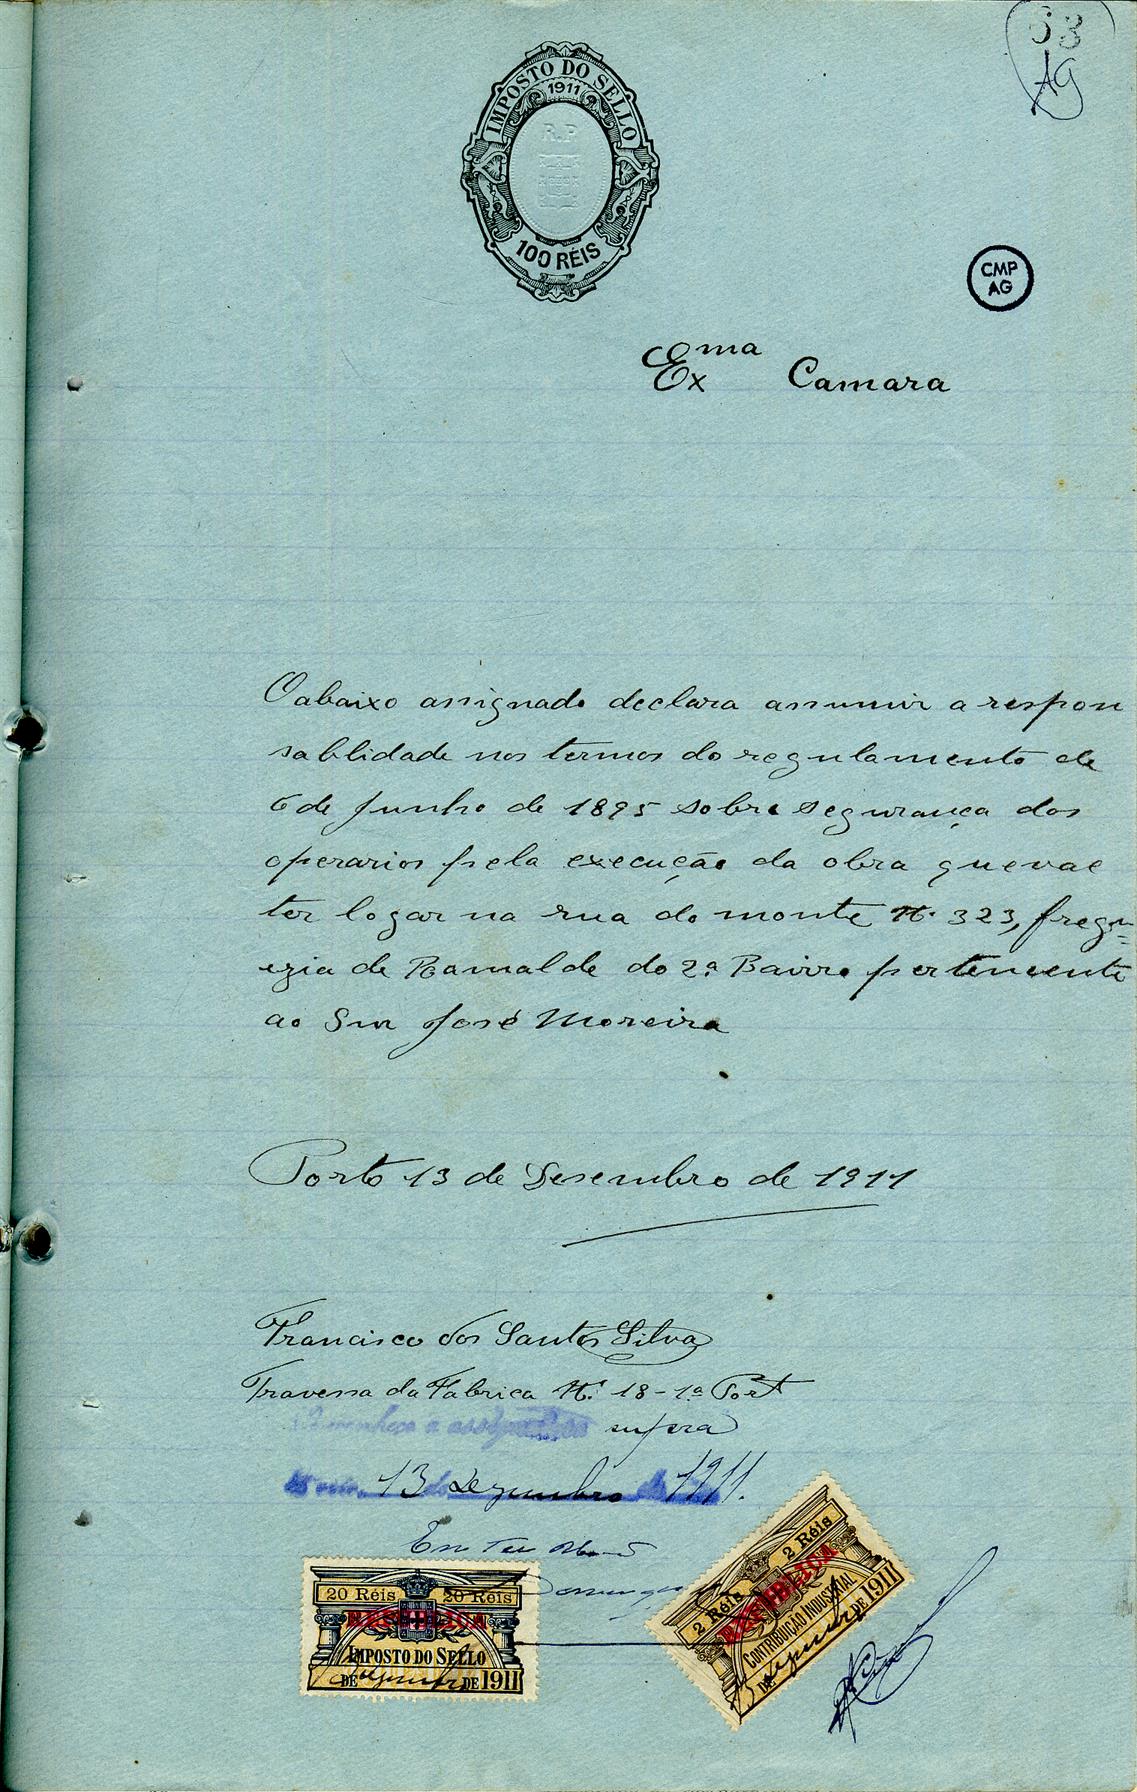 53
AG
IMPOSTO DO SELLO
1911
R.P
100 RÉIS
CMP
AG
Exma Camara
O abaixo assignado declara assumir a respon
sablidade nos termos do regulamento de
6 de Junho de 1895 sobre segurança dos
operarios pela execução da obra que vae
ter logar na rua do monte Nº 323, fregu=
ezia de Ramalde do 2º Bairro pertencente
ao Snr José Moreira
Porto 13 de Desembro de 1911
Francisco dos Santos Silva
Travessa da Fabrica Nº 18-1º Port
Reconheço a assignatura supra
Porto, 13 de Dezembro de 1911.
Em
20 Réis 20 Réis
REPUBLICA
IMPOSTO DO SELLO
DE Dezembro DE 1911
2 Réis 2 Réis
REPUBLICA
CONTRIBUIÇÃO INDUSTRIAL
13 DE Dezembro DE 1911